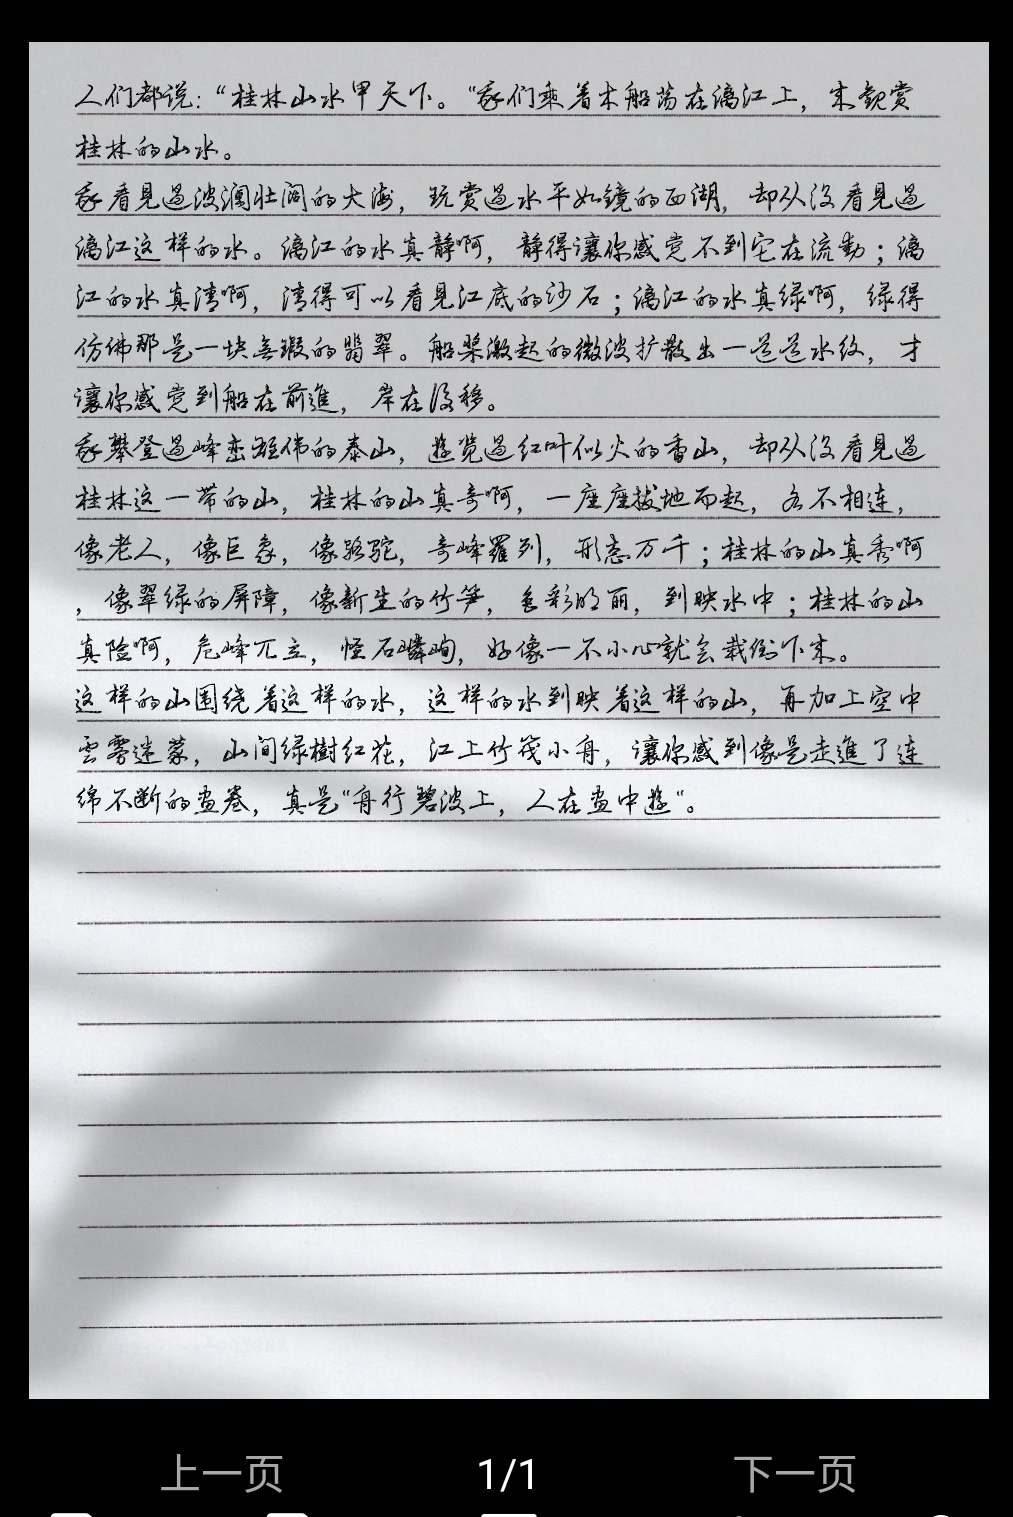 人们都说：“桂林山水甲天下。”我们乘着木船荡在漓江上，来观赏
桂林的山水。
我看见过波澜壮阔的大海，玩赏过水平如镜的西湖，却从没看见过
漓江这样的水。漓江的水真静啊，静得让你感觉不到它在流动；漓
江的水真清啊，清得可以看见江底的沙石；漓江的水真绿啊，绿得
仿佛那是一块无瑕的翡翠。船桨激起的微波扩散出一道道水纹，才
让你感觉到船在前进，岸在后移。
我攀登过峰峦雄伟的泰山，游览过红叶似火的香山，却从没看见过
桂林这一带的山，桂林的山真奇啊，一座座拔地而起，各不相连，
像老人，像巨象，像骆驼，奇峰罗列，形态万千；桂林的山真秀啊
，像翠绿的屏障，像新生的竹笋，色彩明丽，到映水中；桂林的山
真险啊，危峰兀立，怪石嶙峋，好像一不小心就会栽倒下来。
这样的山围绕着这样的水，这样的水到映着这样的山，再加上空中
云雾迷蒙，山间绿树红花，江上竹筏小舟，让你感到像是走进了连
绵不断的画卷，真是“舟行碧波上，人在画中游”。
上一页 1/1 下一页